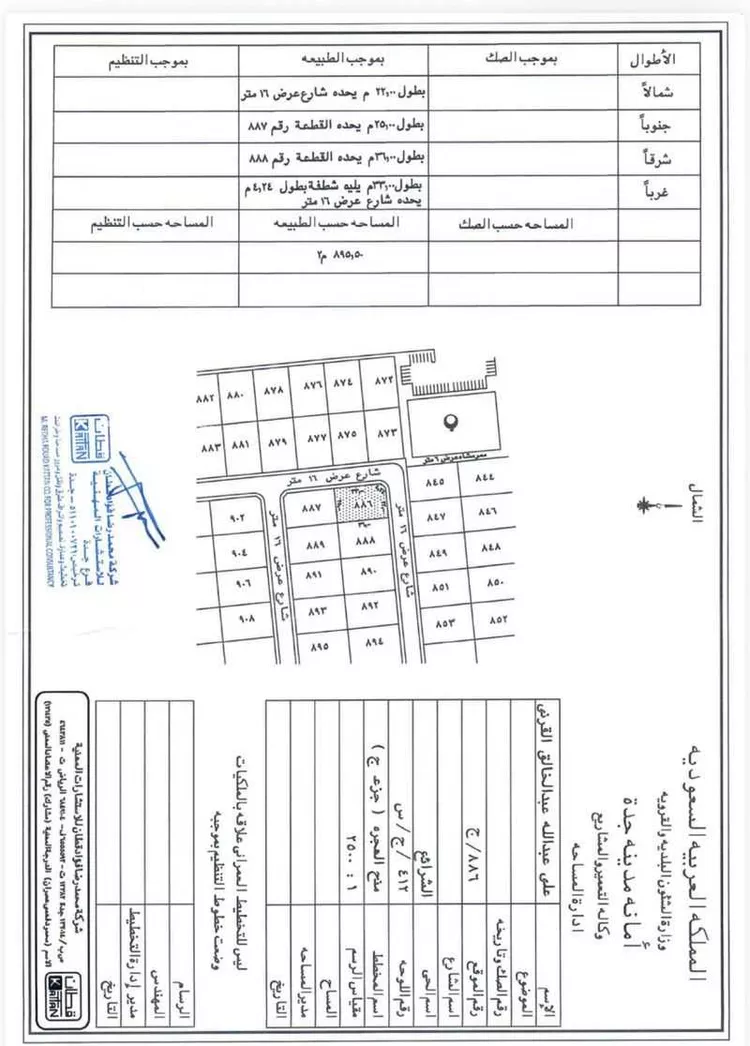 الأطوال بموجب الصك بموجب الطبيعه بموجب التنظيم
شمالاً بطول ٢٢,٠٠ م يحده شارع عرض ١٦ متر
جنوباً بطول ٢٥,٠٠م يحده القطعة رقم ٨٨٧
شرقاً بطول ٣٦,٠٠م يحده القطعة رقم ٨٨٨
غرباً بطول ٣٣,٠٠م يليه شطفة بطول ٤,٢٤م
يحده شارع عرض ١٦ متر
المساحه حسب الصك المساحه حسب الطبيعه المساحه حسب التنظيم
٨٩٥,٥٠ م٢
٨٧٢ ٨٧٤ ٨٧٦ ٨٧٨ ٨٨٠ ٨٨٢
٨٧٣ ٨٧٥ ٨٧٧ ٨٧٩ ٨٨١ ٨٨٣
ممر مشاه عرض ٦ متر
شارع عرض ١٦ متر
٨٤٤ ٨٤٥
٨٤٦ ٨٤٧
٨٤٨ ٨٤٩
٨٥٠ ٨٥١
٨٥٢ ٨٥٣
شارع عرض ١٦ متر
٨٨٦ ٨٨٧
٨٨٨ ٨٨٩
٨٩٠ ٨٩١
٨٩٢ ٨٩٣
٨٩٤ ٨٩٥
شارع عرض ١٦ متر
٩٠٢
٩٠٤
٩٠٦
٩٠٨
الشمال
قطان
KATTAN
شركة محمد رضا فؤاد قطان
للاستشارات المهنية
فرع جدة
المملكه العربيه السعوديه
وزارة الشئون البلديه والقرويه
أمانه مدينه جدة
وكاله التعمير والمشاريع
ادارة المساحه
الإسم علي عبدالله عبدالخالق القرني
الموضوع
رقم الصك وتاريخه
رقم الموقع ٨٨٦/ج
اسم الشارع
اسم الحى الشرائع
رقم اللوحه ٤١٢ / ج / س
اسم المخطط منح الهجره ( جزء ج )
مقياس الرسم ١ : ٢٥٠٠
المساح
مدير المساحه
التاريخ
ليس للتخطيط العمرانى علاقه بالملكيات
وضعت خطوط التنظيم بموجبه
الرسام
المهندس
مدير إدارة التخطيط
التاريخ
شركة محمد رضا فؤاد قطان للاستشارات المهنية
قطان
KATTAN